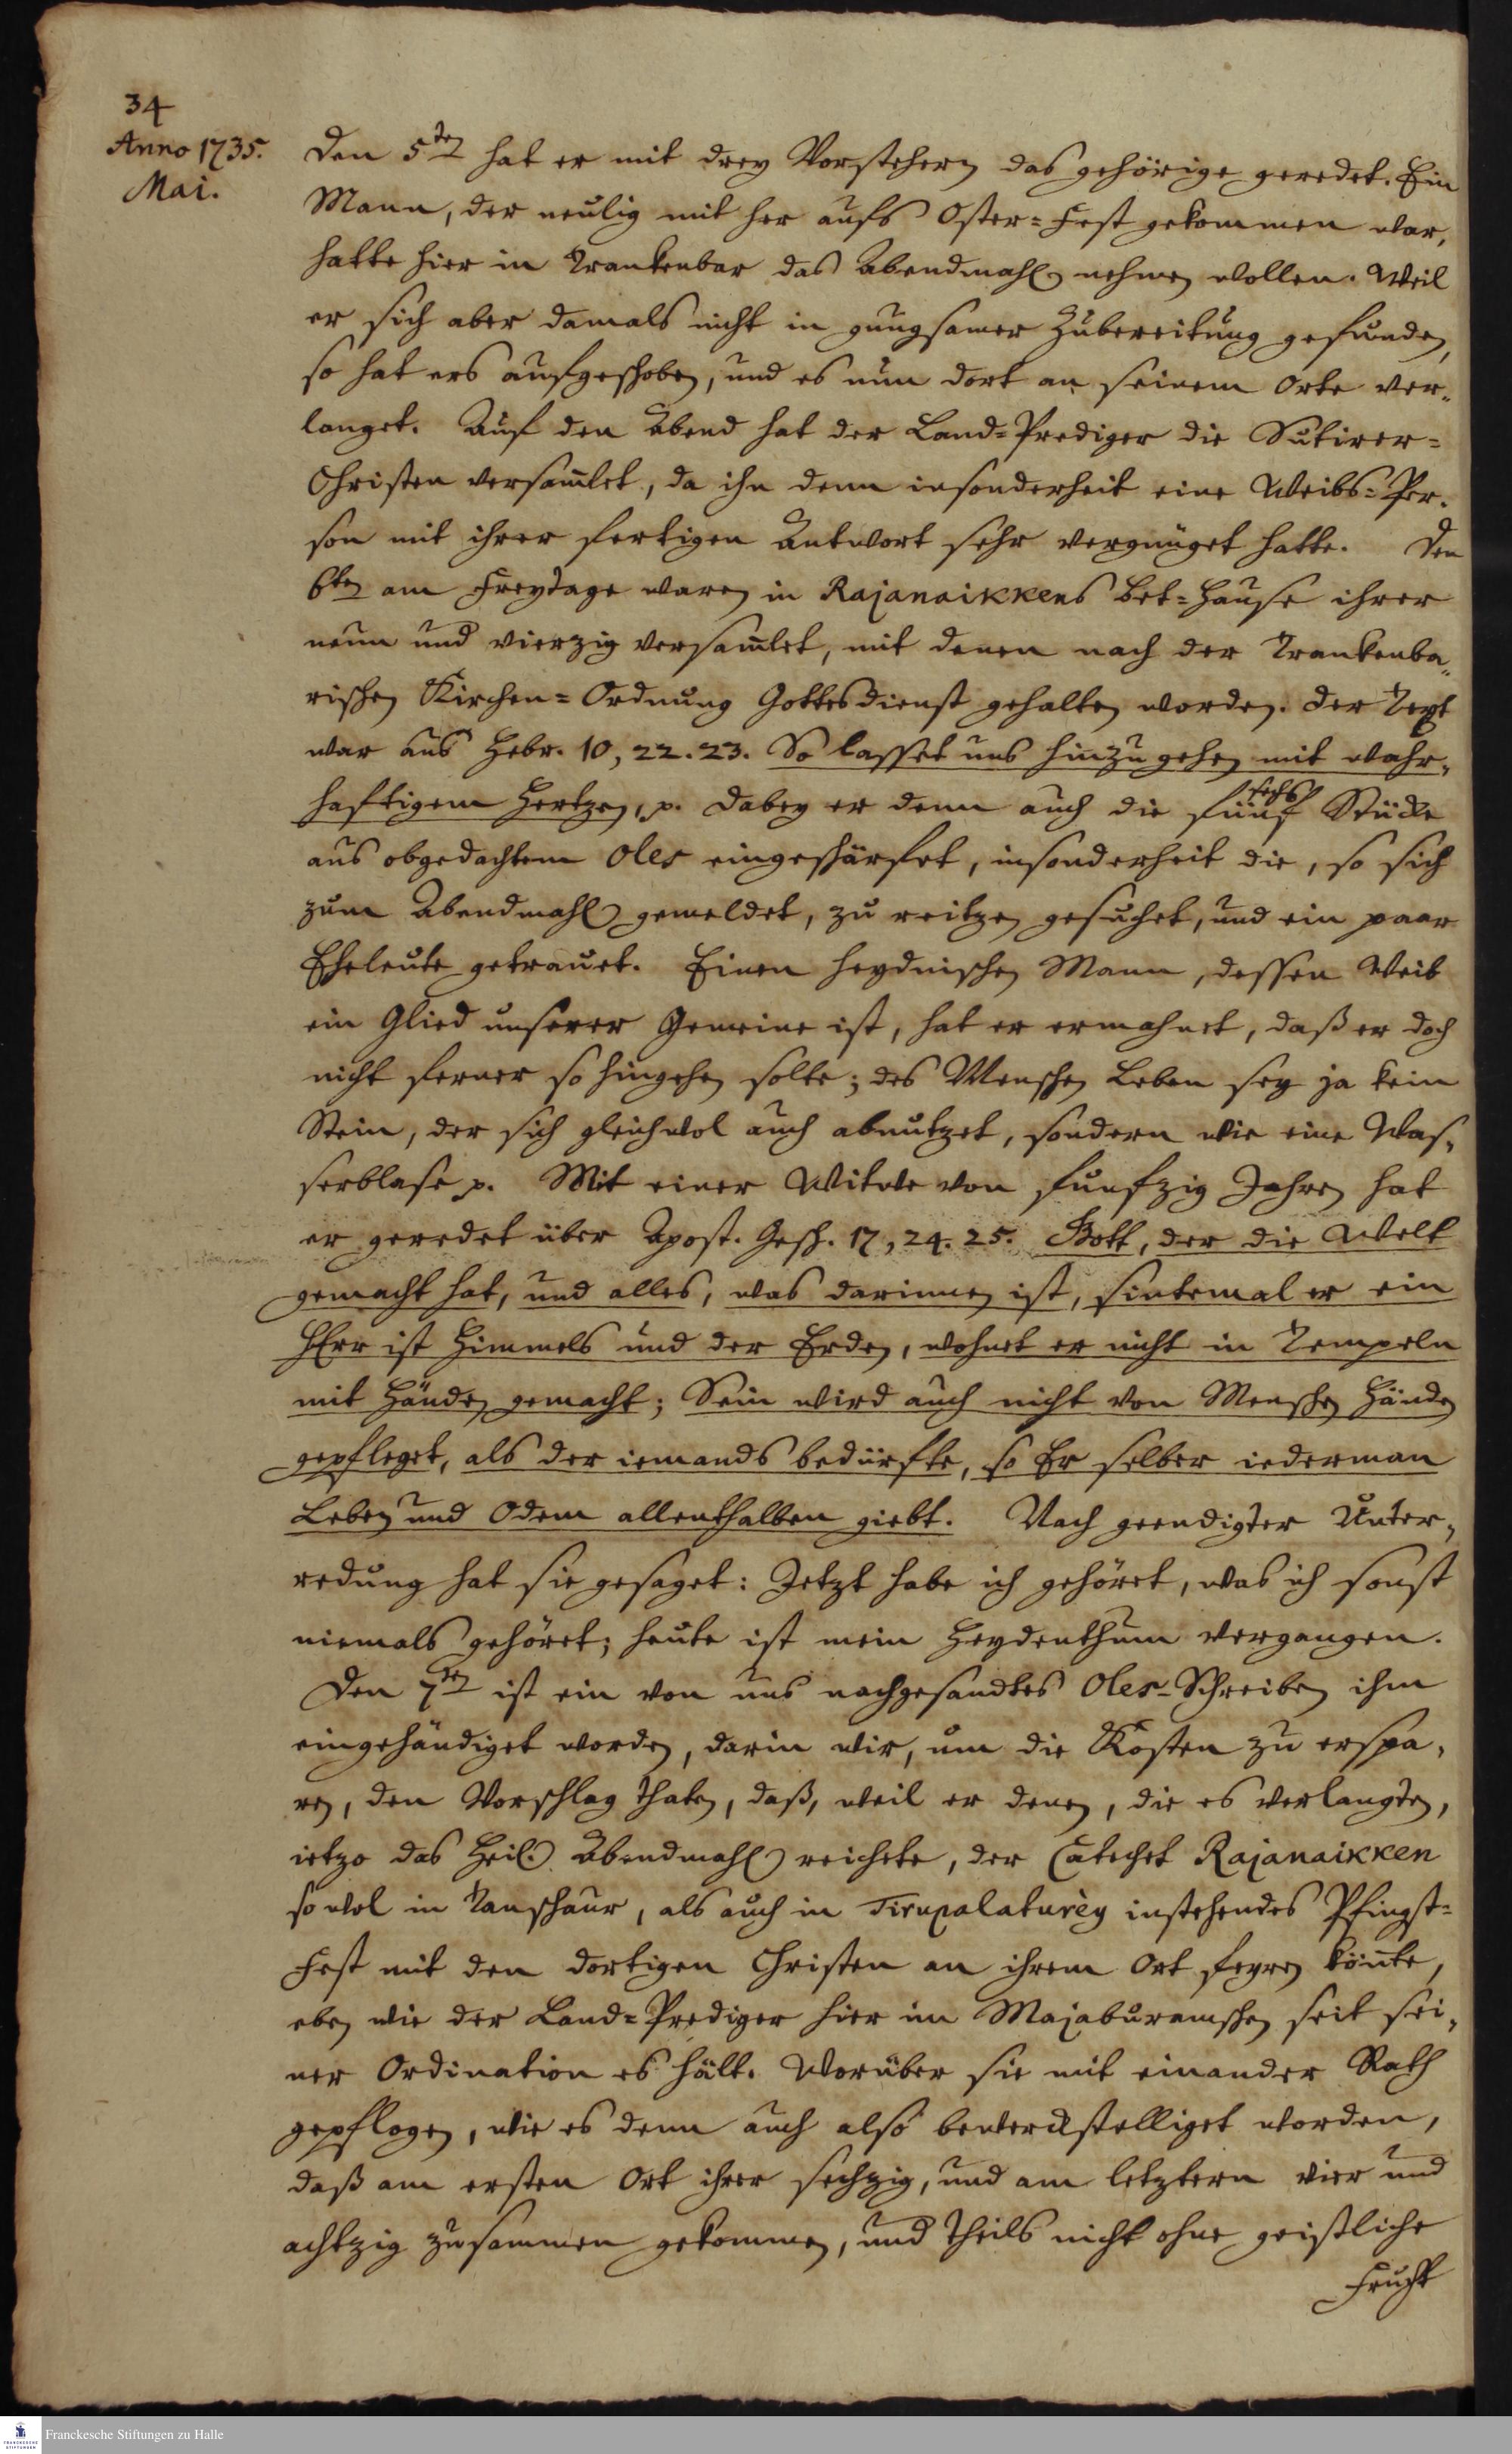 34
Anno 1735.
Mai.
Den 5ten hat er mit drey Vorstehern das gehörige geredet. Ein
Mann, der neulig mit her aufs Oster=Fest gekommen war,
hatte hier in Trankenbar das Abendmahl nehmen wollen. Weil
er sich aber damals nicht in gnugsamer Zubereitung gefunden,
so hat ers aufgeschoben, und es nun dort an seinem Orte ver„
langet. Auf den Abend hat der Land=Prediger die Sutirer=
Christen versam̅let, da ihn denn insonderheit eine Weibs=Per„
son mit ihrer fertigen Antwort sehr vergnüget hatte. Den
6ten am Freytage waren in Rajanaikkens Bet=Hause ihrer
neun und vierzig versam̅let, mit denen nach der Trankenba„
rischen Kirchen=Ordnung Gottesdienst gehalten worden. Der Text
war aus Hebr. 10, 22. 23. So lasset uns hinzu gehen mit wahr„
haftigem Hertzen, p. Dabey er denn auch die fünf sechs Stücke
aus obgedachtem Oles eingeschärfet, insonderheit die, so sich
zum Abendmahl gemeldet, zu reitzen gesuchet, und ein paar
Eheleute getrauet. Einen heydnischen Mann, dessen Weib
ein Glied unserer Gemeine ist, hat er ermahnet, daß er doch
nicht ferner so hingehen solte; des Menschen Leben sey ja kein
Stein, der sich gleichwol auch abnutzet, sondern wie eine Was„
serblase p. Mit einer Witwe von funfzig Jahren hat
er geredet über Apost. Gesch. 17, 24. 25. Gott, der die Welt
gemacht hat, und alles, was darinnen ist, sintemal er ein
HErr ist Himmels und der Erden, wohnet er nicht in Tempeln
mit Händen gemacht; Sein wird auch nicht von Menschen Händen
gepfleget, als der iemands bedürfte, so Er selber iederman
Leben und Odem allenthalben giebt. Nach geendigter Unter„
redung hat sie gesaget: Jetzt habe ich gehöret, was ich sonst
niemals gehöret; heute ist mein Heydenthum vergangen.
Den 7ten ist ein von uns nachgesandtes Oles-Schreiben ihm
eingehändiget worden, darin wir, um die Kosten zu erspa„
ren, den Vorschlag thaten, daß, weil er denen, die es verlangten,
ietzo das Heil. Abendmahl reichete, der Catechet Rajanaikken
so wol in Tanschaur, als auch in Tirupalaturey instehendes Pfingst=
Fest mit den dortigen Christen an ihrem Ort feyren kön̅te,
eben wie der Land=Prediger hier im Majaburamschen seit sei„
ner Ordination es hält. Worüber sie mit einander Rath
gepflogen, wie es denn auch also bewerckstelliget worden,
daß am ersten Ort ihrer sechzig, und am letztern vier und
achtzig zusammen gekommen, und theils nicht ohne geistliche
Frucht
Franckesche Stiftungen zu Halle